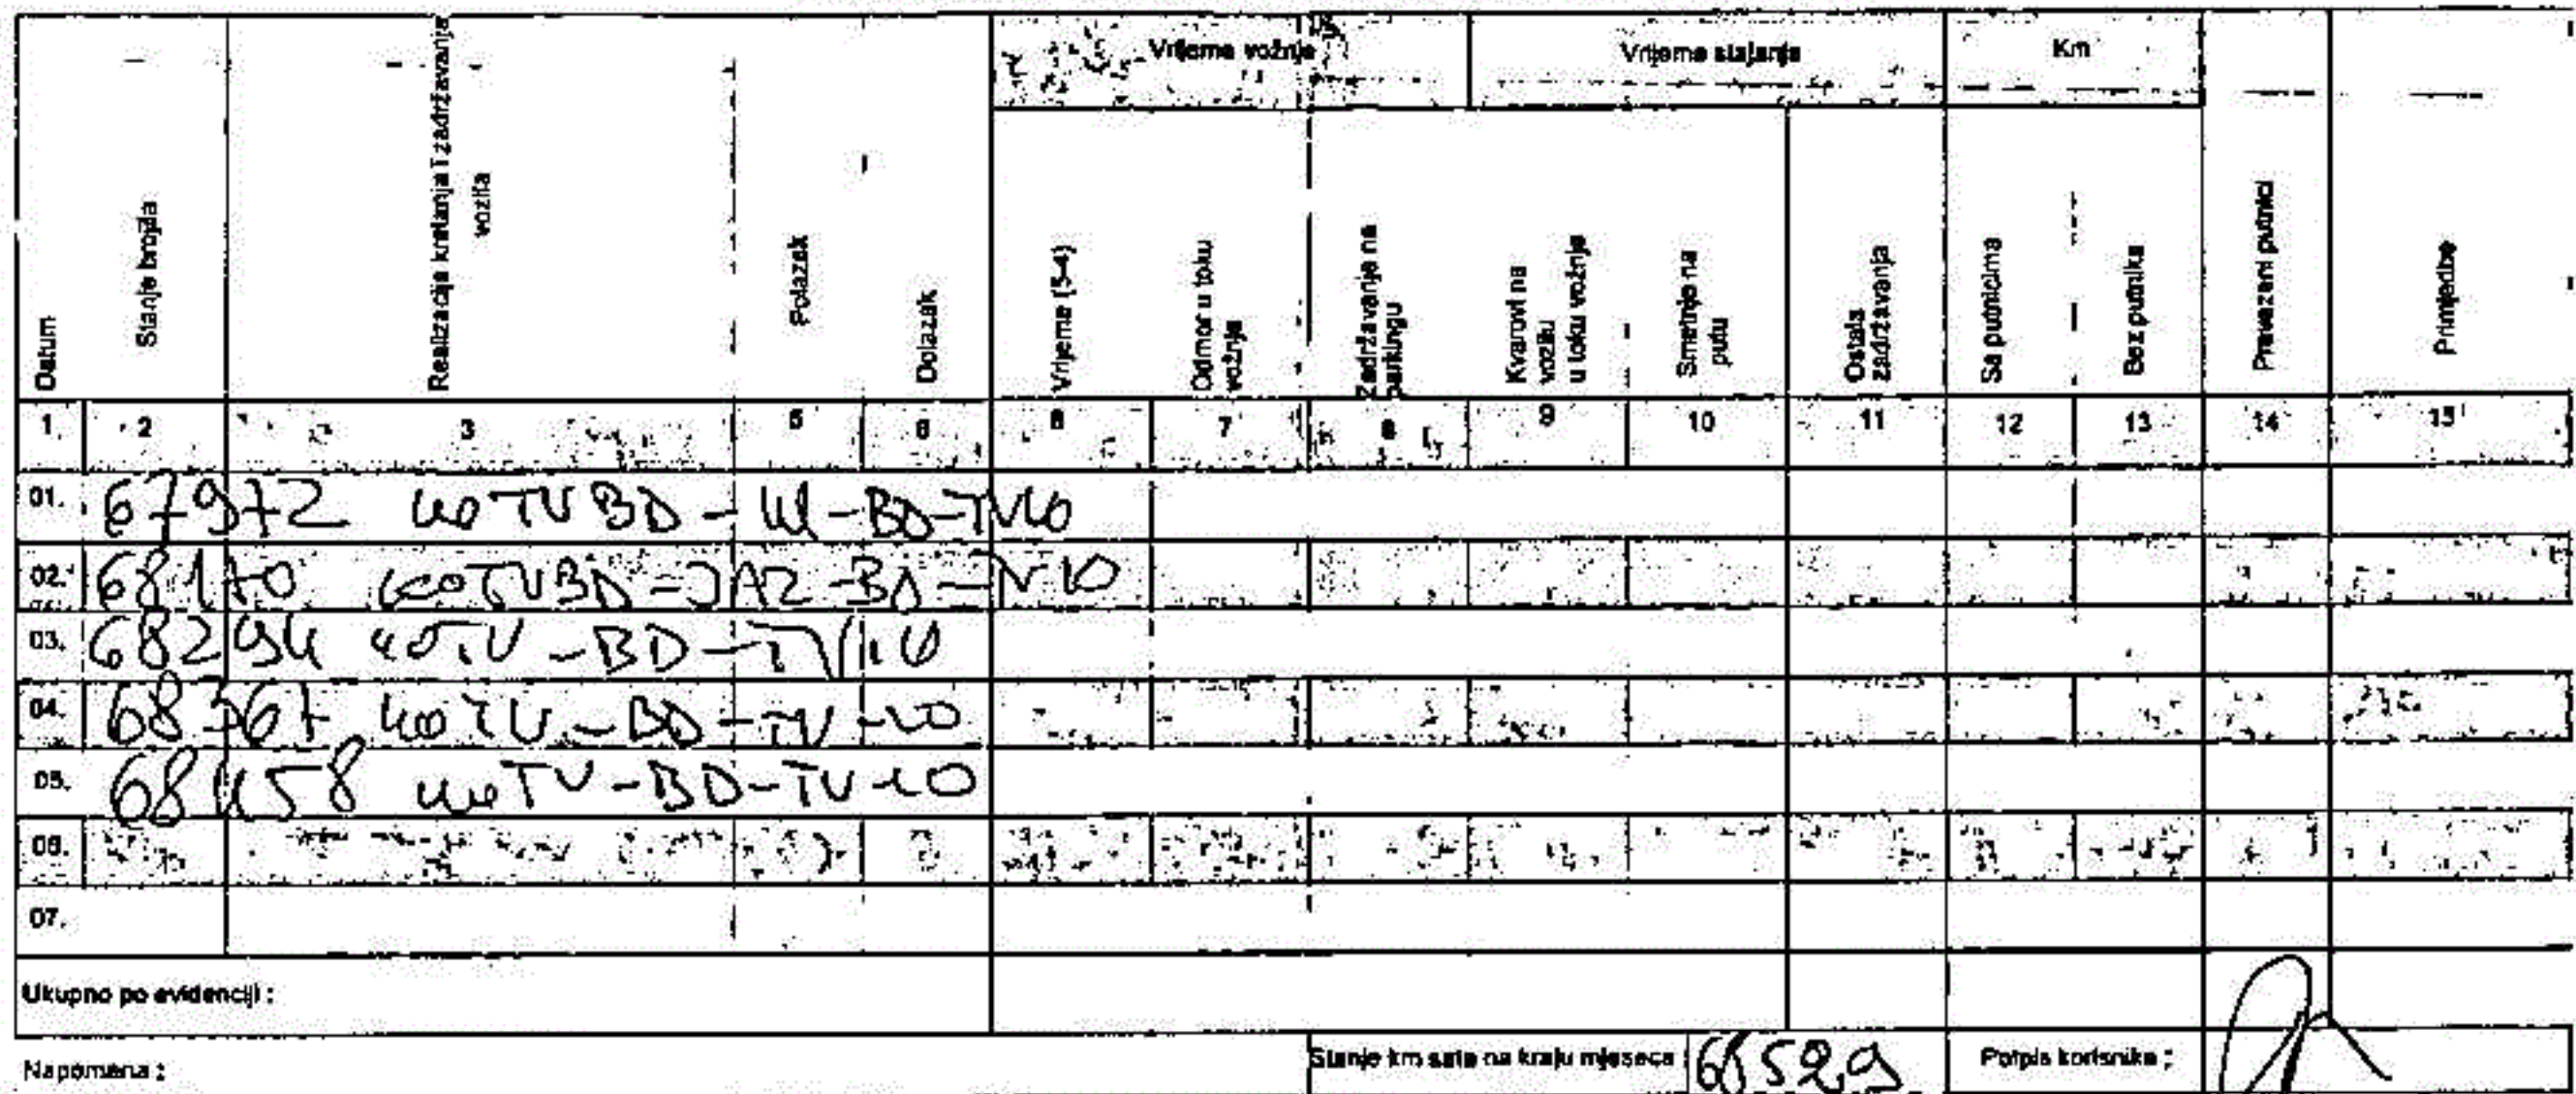 Vrijeme vožnje
Vrijeme stajanja
Km
Datum
Stanje brojila
Realizacija kretanja i zadržavanja
vozila
Polazak
Dolazak
Vrijeme (5-4)
Odmor u toku
vožnje
Zadržavanje na
parkingu
Kvarovi na
vozilu
u toku vožnje
Smetnje na
putu
Ostala
zadržavanja
Sa putnicima
Bez putnika
Prevezeni putnici
Primjedbe
1. 2 3 5 6 6 7 8 9 10 11 12 13 14 15
01. 67972 TV BD - BD - TV
02. 68170 TV BD - JAZ - BD
03. 68294 TV - BD - TV
04. 68367 TV - BD - TV
05. 68458 TV - BD - TV
06.
07.
Ukupno po evidenciji :
Napomena :
Stanje km sata na kraju mjeseca : 68529
Potpis korisnika :